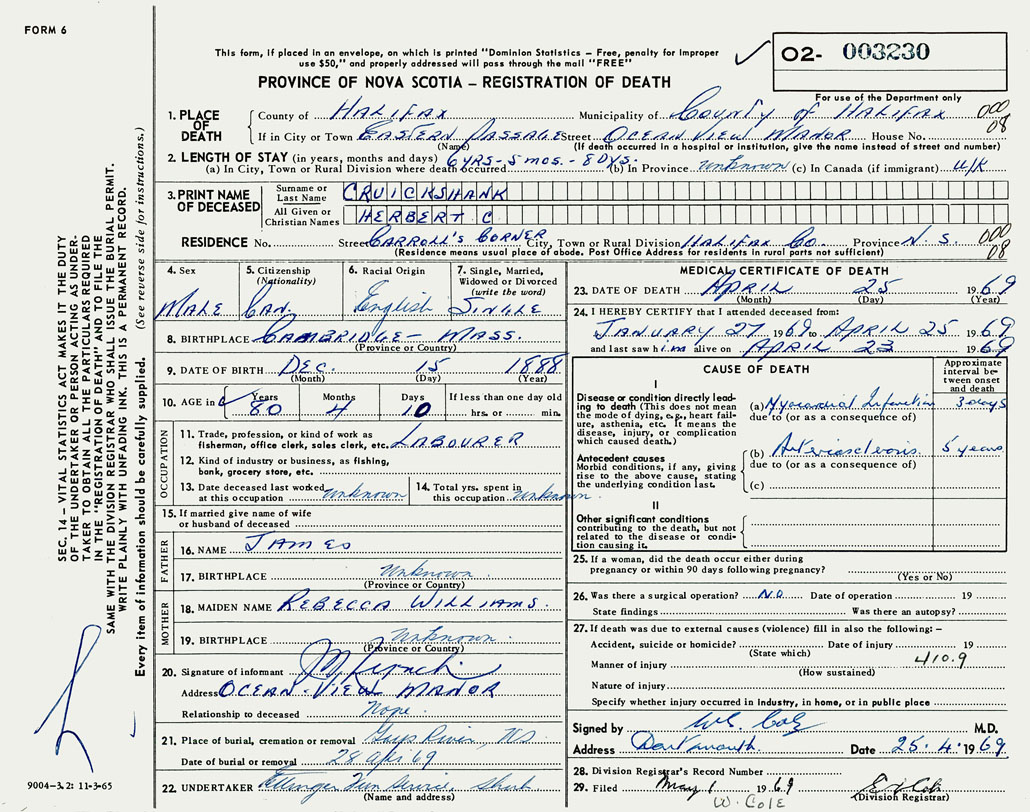 FORM 6
This form, if placed in an envelope, on which is printed "Dominion Statistics – Free, penalty for improper
use $50," and properly addressed will pass through the mail "FREE"
O2- 003230
PROVINCE OF NOVA SCOTIA – REGISTRATION OF DEATH
For use of the Department only
1. PLACE OF DEATH
County of HALIFAX Municipality of County of HALIFAX 000
If in City or Town EASTERN PASSAGE Street OCEAN VIEW MANOR House No. 08
(Name) (If death occurred in a hospital or institution, give the name instead of street and number)
2. LENGTH OF STAY (in years, months and days) 6 YRS - 5 mos. - 8 DYS.
(a) In City, Town or Rural Division where death occurred (b) In Province unknown (c) In Canada (if immigrant) U/K
3. PRINT NAME OF DECEASED
Surname or Last Name CRUICKSHANK
All Given or Christian Names HERBERT C
RESIDENCE No. Street CARROLL'S CORNER City, Town or Rural Division HALIFAX Co. Province N. S. 000
(Residence means usual place of abode. Post Office Address for residents in rural parts not sufficient) 08
4. Sex MALE
5. Citizenship (Nationality) CAN.
6. Racial Origin English
7. Single, Married, Widowed or Divorced (write the word) SINGLE
8. BIRTHPLACE CAMBRIDGE - MASS.
(Province or Country)
9. DATE OF BIRTH DEC. 15 1888
(Month) (Day) (Year)
10. AGE in Years 80 Months 4 Days 10 If less than one day old hrs. or min.
OCCUPATION
11. Trade, profession, or kind of work as fisherman, office clerk, sales clerk, etc. LABOURER
12. Kind of industry or business, as fishing, bank, grocery store, etc.
13. Date deceased last worked at this occupation unknown
14. Total yrs. spent in this occupation unknown
15. If married give name of wife or husband of deceased
FATHER
16. NAME JAMES
17. BIRTHPLACE Unknown
(Province or Country)
MOTHER
18. MAIDEN NAME REBECCA WILLIAMS.
19. BIRTHPLACE Unknown
(Province or Country)
20. Signature of informant Lynch
Address OCEAN-VIEW MANOR
Relationship to deceased None.
21. Place of burial, cremation or removal Gays River, NS
Date of burial or removal 28 Apl 69
22. UNDERTAKER Ettinger
(Name and address)
MEDICAL CERTIFICATE OF DEATH
23. DATE OF DEATH APRIL 25 1969
(Month) (Day) (Year)
24. I HEREBY CERTIFY that I attended deceased from:
JANUARY 27 1969 to APRIL 25 1969
and last saw him alive on APRIL 23 1969
CAUSE OF DEATH
Approximate interval between onset and death
I
Disease or condition directly leading to death (This does not mean the mode of dying, e.g., heart failure, asthenia, etc. It means the disease, injury, or complication which caused death.)
(a) Myocardial Infarction 3 days
due to (or as a consequence of)
Antecedent causes
Morbid conditions, if any, giving rise to the above cause, stating the underlying condition last.
(b) Arteriosclerosis 5 years
due to (or as a consequence of)
(c)
II
Other significant conditions
contributing to the death, but not related to the disease or condition causing it.
25. If a woman, did the death occur either during
pregnancy or within 90 days following pregnancy?
(Yes or No)
26. Was there a surgical operation? NO. Date of operation 19
State findings Was there an autopsy?
27. If death was due to external causes (violence) fill in also the following: –
Accident, suicide or homicide? Date of injury 19
(State which)
Manner of injury 410.9
(How sustained)
Nature of injury
Specify whether injury occurred in industry, in home, or in public place
Signed by Cole M.D.
Address Dartmouth. Date 25.4.1969
28. Division Registrar's Record Number
29. Filed May 1 1969
(Division Registrar)
W. COLE
SEC. 14 – VITAL STATISTICS ACT MAKES IT THE DUTY
OF THE UNDERTAKER OR PERSON ACTING AS UNDER-
TAKER TO OBTAIN ALL THE PARTICULARS REQUIRED
IN THE "REGISTRATION OF DEATH" AND TO FILE THE
SAME WITH THE DIVISION REGISTRAR WHO SHALL ISSUE THE BURIAL PERMIT.
WRITE PLAINLY WITH UNFADING INK. THIS IS A PERMANENT RECORD.
Every item of information should be carefully supplied. (See reverse side for instructions.)
9004-3.2: 11-3-65